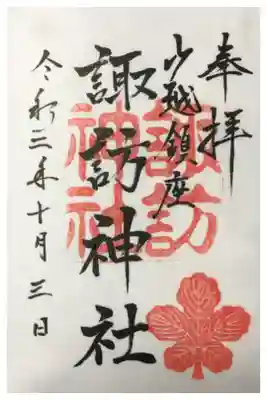 奉拝
越鎮座
諏訪神社
諏訪
神社
令和三年十月三日